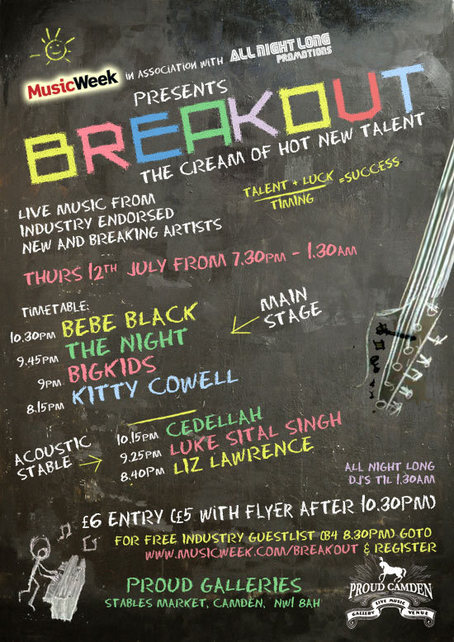 MusicWeek IN ASSOCIATION WITH ALL NIGHT LONG
PROMOTIONS
PRESENTS
BREAKOUT
THE CREAM OF HOT NEW TALENT
TALENT + LUCK = SUCCESS
TIMING
LIVE MUSIC FROM
INDUSTRY ENDORSED
NEW AND BREAKING ARTISTS
THURS 12TH JULY FROM 7.30PM - 1.30AM
TIMETABLE:
MAIN
STAGE
10.30PM BEBE BLACK
9.45PM THE NIGHT
9PM BIGKIDS
8.15PM KITTY COWELL
ACOUSTIC
STABLE
10.15PM CEDELLAH
9.25PM LUKE SITAL SINGH
8.40PM LIZ LAWRENCE
ALL NIGHT LONG
DJ'S TIL 1.30AM
£6 ENTRY (£5 WITH FLYER AFTER 10.30PM)
FOR FREE INDUSTRY GUESTLIST (B4 8.30PM) GOTO
WWW.MUSICWEEK.COM/BREAKOUT & REGISTER
PROUD GALLERIES
STABLES MARKET, CAMDEN, NW1 8AH
PROUD CAMDEN
GALLERY LIVE MUSIC VENUE